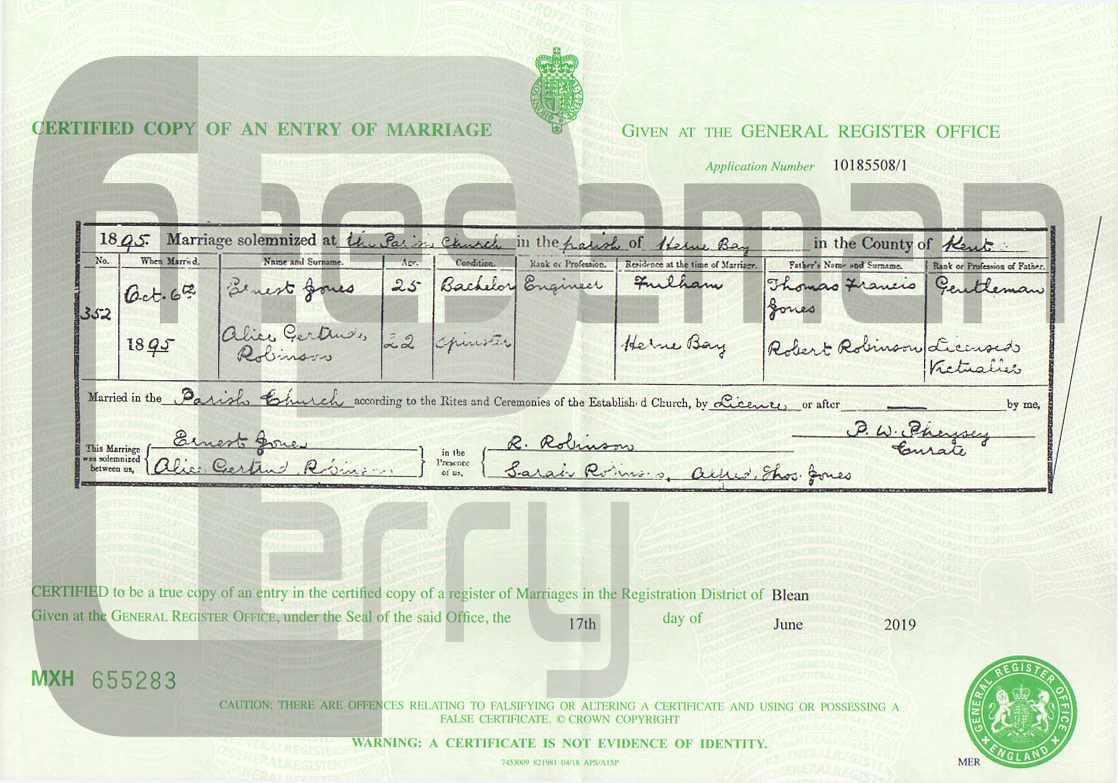 CERTIFIED COPY OF AN ENTRY OF MARRIAGE
GIVEN AT THE GENERAL REGISTER OFFICE
Application Number 10185508/1
Cheeseman
Perry
1895. Marriage solemnized at the Parish Church in the parish of Herne Bay in the County of Kent
No. When Married. Name and Surname. Age. Condition. Rank or Profession. Residence at the time of Marriage. Father's Name and Surname. Rank or Profession of Father.
352 Oct. 6th 1895 Ernest Jones 25 Bachelor Engineer Fulham Thomas Francis Jones Gentleman
Alice Gertrude Robinson 22 Spinster Herne Bay Robert Robinson Licensed Victualler
Married in the Parish Church according to the Rites and Ceremonies of the Established Church, by Licence or after — by me,
P. W. Curate
This Marriage was solemnized between us, Ernest Jones Alice Gertrude Robinson in the Presence of us, R. Robinson Sarah Robinson, Alfred Thos. Jones
CERTIFIED to be a true copy of an entry in the certified copy of a register of Marriages in the Registration District of Blean
Given at the GENERAL REGISTER OFFICE, under the Seal of the said Office, the 17th day of June 2019
MXH 655283
CAUTION: THERE ARE OFFENCES RELATING TO FALSIFYING OR ALTERING A CERTIFICATE AND USING OR POSSESSING A
FALSE CERTIFICATE. © CROWN COPYRIGHT
WARNING: A CERTIFICATE IS NOT EVIDENCE OF IDENTITY.
7453009 821981 04/18 APS/A15P
MER
GENERAL REGISTER OFFICE
ENGLAND